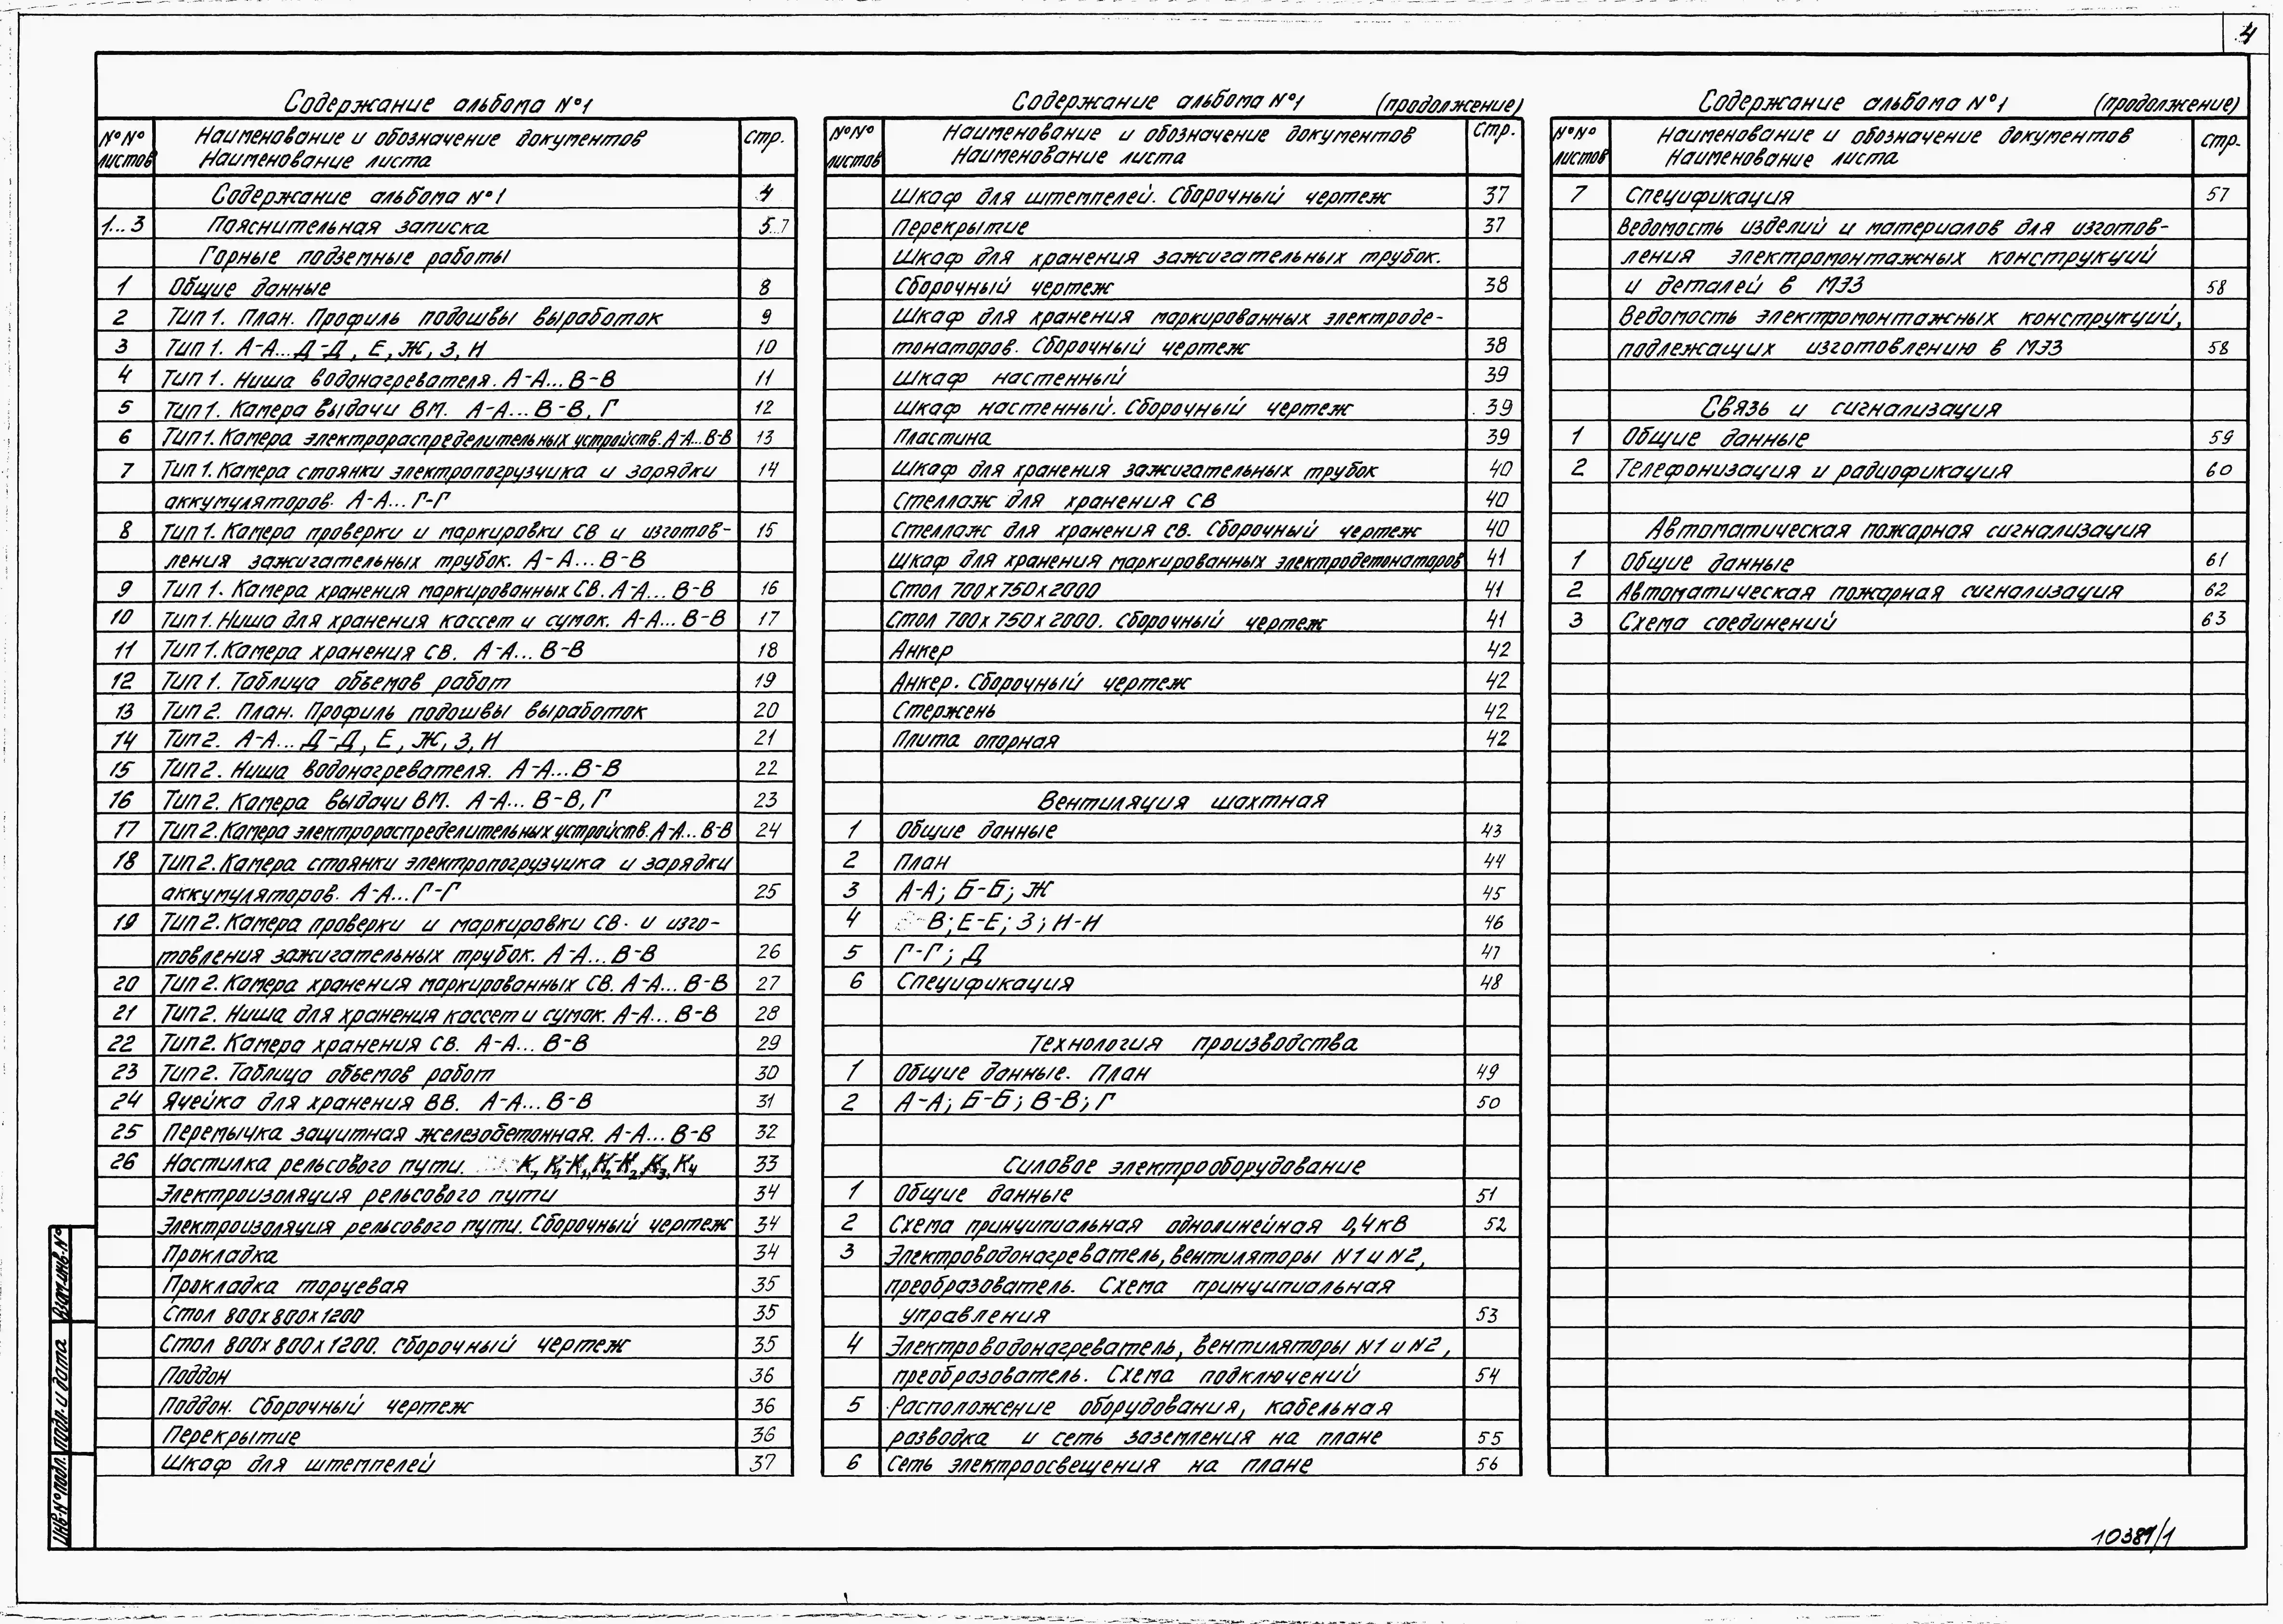 4
Содержание альбома №1
№№ листов
Наименование и обозначение документов
Наименование листа
стр.
Содержание альбома №1 4
1...3 Пояснительная записка 5..7
Горные подземные работы
1 Общие данные 8
2 Тип 1. План. Профиль подошвы выработок 9
3 Тип 1. А-А...Д-Д, Е, Ж, З, И 10
4 Тип 1. Ниша водонагревателя. А-А...В-В 11
5 Тип 1. Камера выдачи ВМ. А-А...В-В, Г 12
6 Тип 1. Камера электрораспределительных устройств. А-А...В-В 13
7 Тип 1. Камера стоянки электропогрузчика и зарядки 14
аккумуляторов. А-А...Г-Г
8 Тип 1. Камера проверки и маркировки СВ и изготов- 15
ления зажигательных трубок. А-А...В-В
9 Тип 1. Камера хранения маркированных СВ. А-А...В-В 16
10 Тип 1. Ниша для хранения кассет и сумок. А-А...В-В 17
11 Тип 1. Камера хранения СВ. А-А...В-В 18
12 Тип 1. Таблица объемов работ 19
13 Тип 2. План. Профиль подошвы выработок 20
14 Тип 2. А-А...Д-Д, Е, Ж, З, И 21
15 Тип 2. Ниша водонагревателя. А-А...В-В 22
16 Тип 2. Камера выдачи ВМ. А-А...В-В, Г 23
17 Тип 2. Камера электрораспределительных устройств. А-А...В-В 24
18 Тип 2. Камера стоянки электропогрузчика и зарядки
аккумуляторов. А-А...Г-Г 25
19 Тип 2. Камера проверки и маркировки СВ. и изго-
товления зажигательных трубок. А-А...В-В 26
20 Тип 2. Камера хранения маркированных СВ. А-А...В-В 27
21 Тип 2. Ниша для хранения кассет и сумок. А-А...В-В 28
22 Тип 2. Камера хранения СВ. А-А...В-В 29
23 Тип 2. Таблица объемов работ 30
24 Ячейка для хранения ВВ. А-А...В-В 31
25 Перемычка защитная железобетонная. А-А...В-В 32
26 Настилка рельсового пути. К, К1-К1, К2-К2, К3, К4 33
Электроизоляция рельсового пути 34
Электроизоляция рельсового пути. Сборочный чертеж 34
Прокладка 34
Прокладка торцевая 35
Стол 800х800х1200 35
Стол 800х800х1200. Сборочный чертеж 35
Поддон 36
Поддон. Сборочный чертеж 36
Перекрытие 36
Шкаф для штемпелей 37
Содержание альбома №1 (продолжение)
№№ листов
Наименование и обозначение документов
Наименование листа
стр.
Шкаф для штемпелей. Сборочный чертеж 37
Перекрытие 37
Шкаф для хранения зажигательных трубок.
Сборочный чертеж 38
Шкаф для хранения маркированных электроде-
тонаторов. Сборочный чертеж 38
Шкаф настенный 39
Шкаф настенный. Сборочный чертеж 39
Пластина 39
Шкаф для хранения зажигательных трубок 40
Стеллаж для хранения СВ 40
Стеллаж для хранения св. Сборочный чертеж 40
Шкаф для хранения маркированных электродетонаторов 41
Стол 700х750х2000 41
Стол 700х750х2000. Сборочный чертеж 41
Анкер 42
Анкер. Сборочный чертеж 42
Стержень 42
Плита опорная 42
Вентиляция шахтная
1 Общие данные 43
2 План 44
3 А-А; Б-Б; Ж 45
4 В; Е-Е; З; И-И 46
5 Г-Г; Д 47
6 Спецификация 48
Технология производства
1 Общие данные. План 49
2 А-А; Б-Б; В-В; Г 50
Силовое электрооборудование
1 Общие данные 51
2 Схема принципиальная однолинейная 0,4кв 52
3 Электроводонагреватель, вентиляторы N1 и N2,
преобразователь. Схема принципиальная
управления 53
4 Электроводонагреватель, вентиляторы N1 и N2,
преобразователь. Схема подключений 54
5 Расположение оборудования, кабельная
разводка и сеть заземления на плане 55
6 Сеть электроосвещения на плане 56
Содержание альбома №1 (продолжение)
№№ листов
Наименование и обозначение документов
Наименование листа
стр.
7 Спецификация 57
Ведомость изделий и материалов для изготов-
ления электромонтажных конструкций
и деталей в МЭЗ 58
Ведомость электромонтажных конструкций,
подлежащих изготовлению в МЭЗ 58
Связь и сигнализация
1 Общие данные 59
2 Телефонизация и радиофикация 60
Автоматическая пожарная сигнализация
1 Общие данные 61
2 Автоматическая пожарная сигнализация 62
3 Схема соединений 63
Инв. № подл. Подп. и дата Взам. инв. №
10389/1